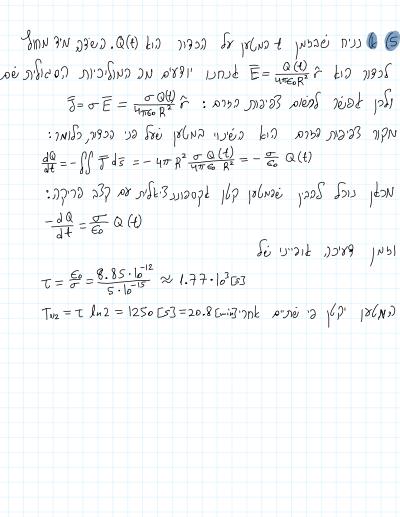 5) א) נניח שבזמן t המטען על הכדור הוא Q(t). השדה מיד מחוץ
לכדור הוא E̅ = Q(t)/4πε₀R² r̂ אנחנו יודעים מה המוליכות הסגולית שם
ולכן אפשר לרשום צפיפות הזרם: J̅ = σE̅ = σQ(t)/4πε₀R² r̂
מקור צפיפות הזרם הוא השינוי במטען שעל פני הכדור, כלומר:
dQ/dt = -∬ J̅ ds̅ = -4πR² σQ(t)/4πε₀R² = -σ/ε₀ Q(t)
מכאן נוכל להבין שהמטען קטן אקספוננציאלית עם קצב פריקה:
-dQ/dt = σ/ε₀ Q(t)
וזמן דעיכה אופייני של
τ = ε₀/σ = 8.85·10⁻¹²/5·10⁻¹⁵ ≈ 1.77·10³[s]
המטען יקטן פי שתיים אחרי T₁/₂ = τ ln2 = 1250[s] = 20.8[min]